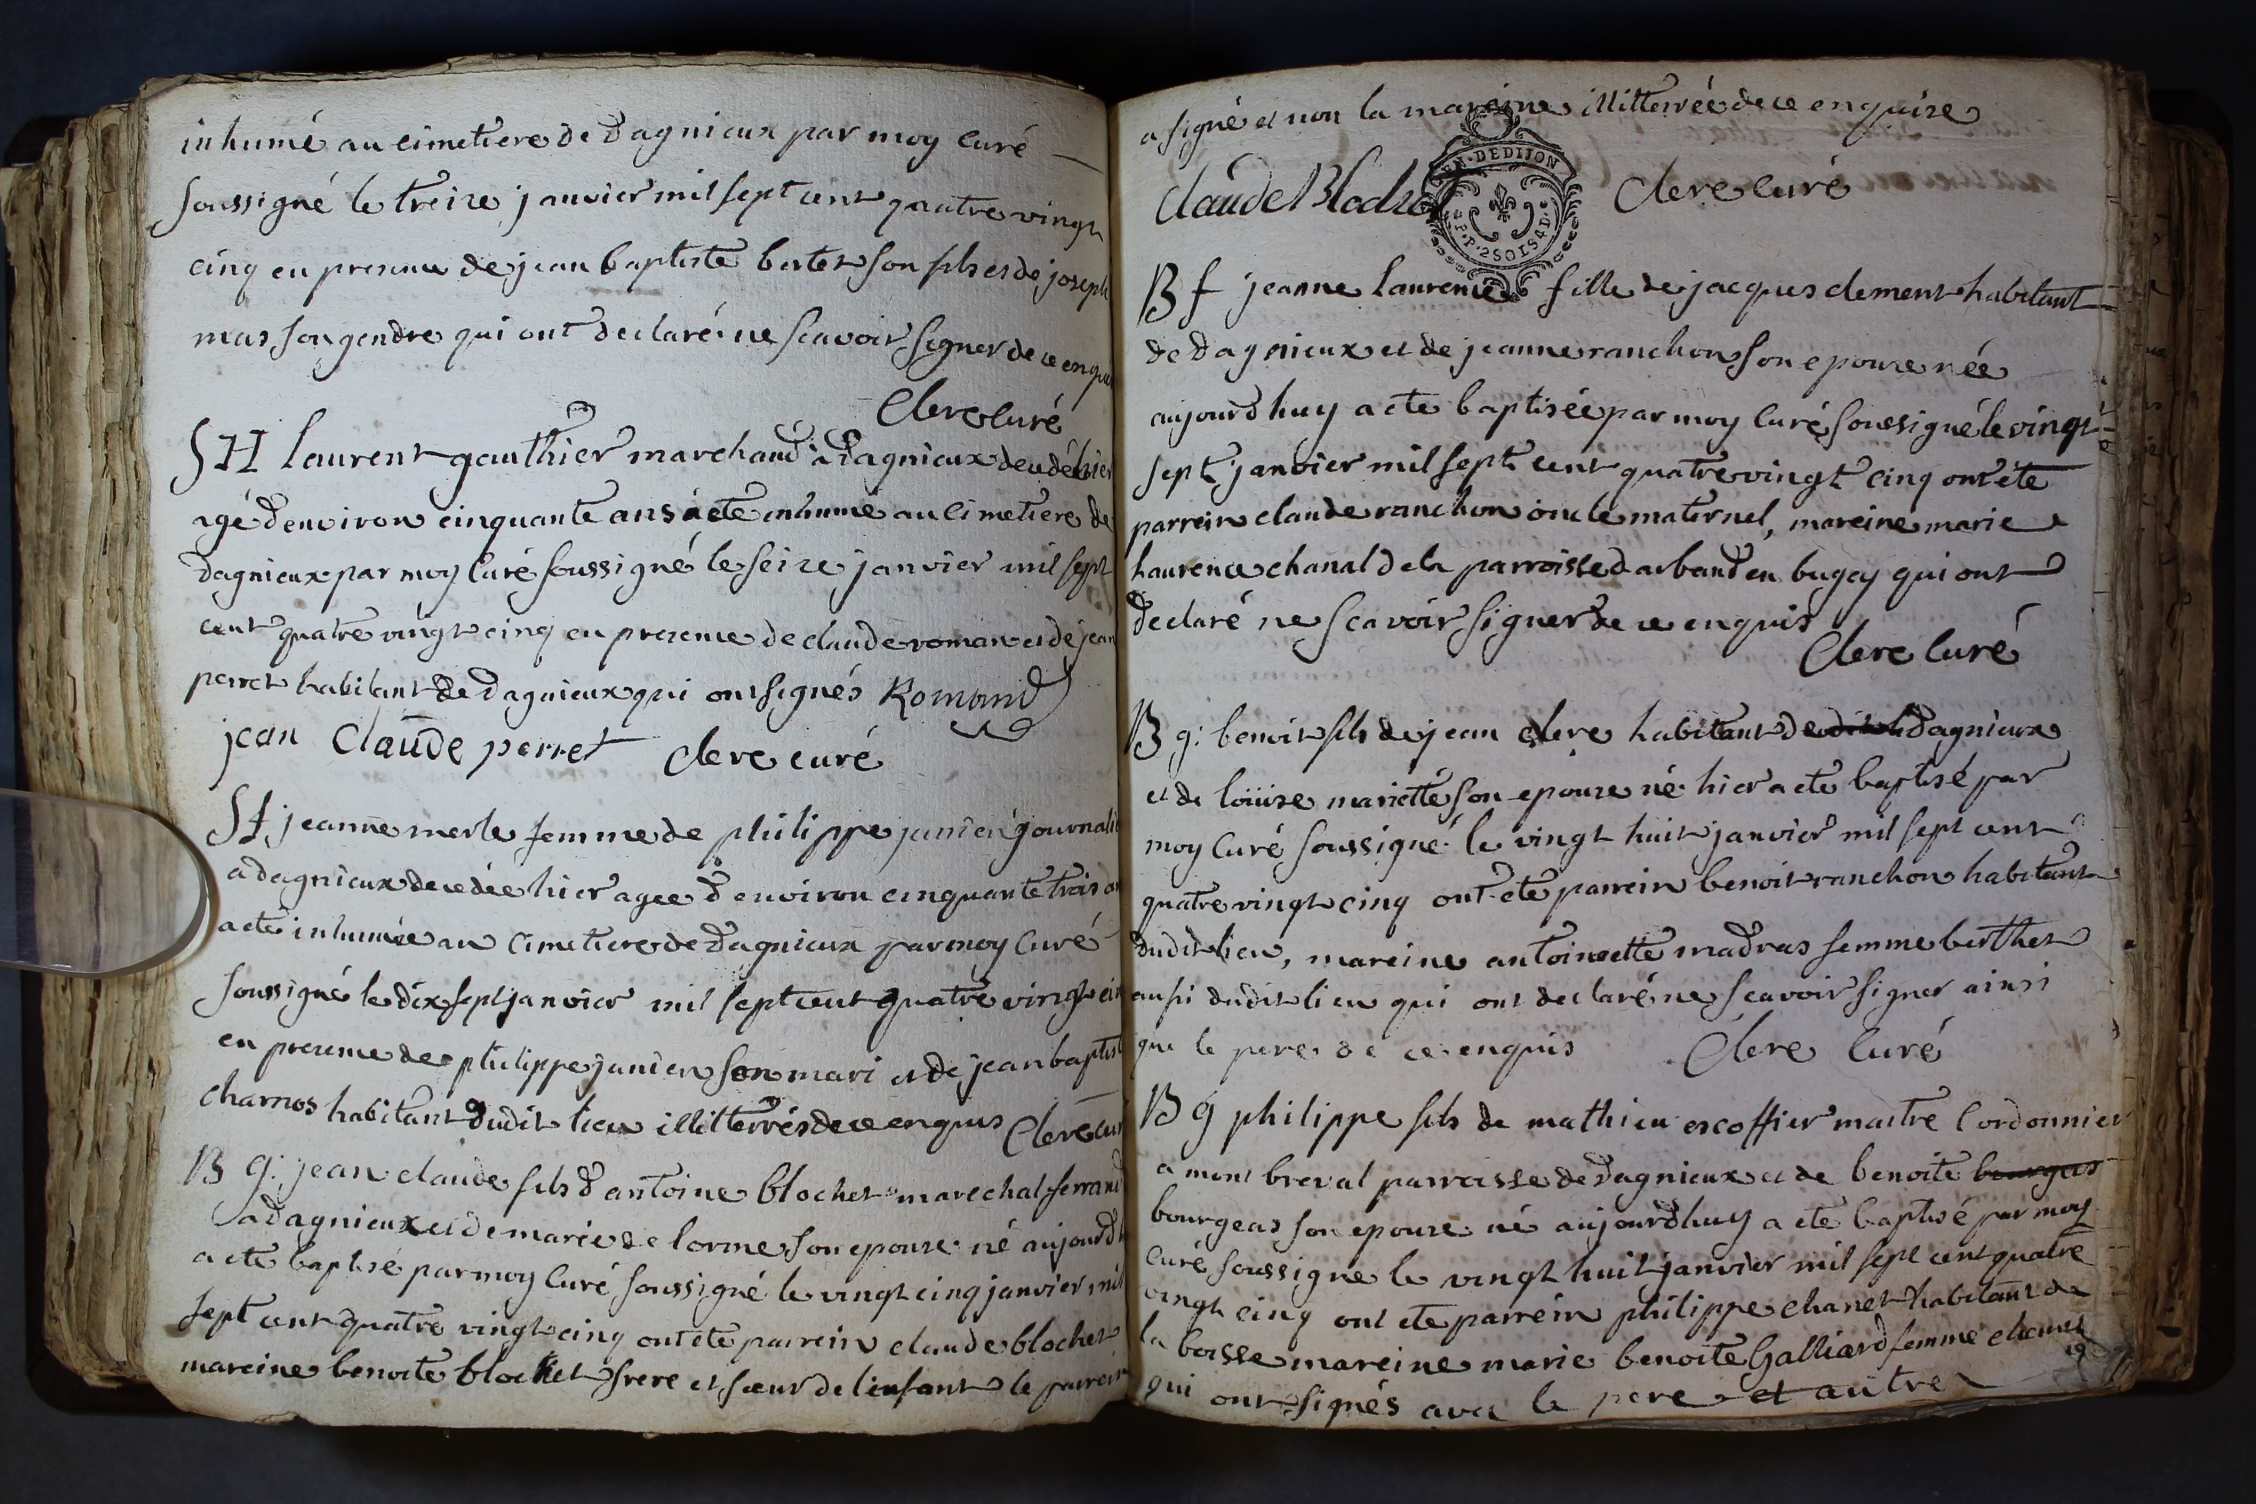 inhumé au cimetiere de Dagnieux par moy curé
soussigné le treize janvier mil sept cent quatre vingt
cinq en presence de jean baptiste bertet son fils et de joseph
mas son gendre qui ont declaré ne scavoir signer de ce enquis
Clere curé
SH laurent gauthier marchand a Dagnieux decedé hier
agé d'environ cinquante ans a ete inhumé au cimetiere de
dagnieux par moy curé soussigné le seize janvier mil sept
cent quatre vingt cinq en presence de claude roman et de jean
perret habitant de Dagnieux qui ont signés Romand
jean Claude perret Clere curé
Sf jeanne merle femme de philippe janier journali
a dagnieux decedée hier agee d'environ cinquante trois an
a eté inhumée au cimetiere de Dagnieux par moy curé
soussigné le dix sept janvier mil sept cent quatre vingt cin
en presence de philippe janier son mari et de jean baptist
charnos habitant dudit lieu illitterrés de ce enquis Clere cur
B g: jean claude fils d'antoine blochet marechal ferrand
a dagnieux et de marie de lorme son epouse né aujourdh
a ete baptisé par moy curé soussigné le vingt cinq janvier mil
sept cent quatre vingt cinq ont ete parrein claude blochet
mareine benoite blochet frere et sœur de l'enfant le parrein
a signé et non la mareine illitterrée de ce enquise
EN DE DIJON
P.P. 2 SOLS 4 D.
claude Blochet Clere curé
B f jeanne laurence fille de jacques clement habitant
de Dagnieux et de jeanne ranchon son epouse née
aujourd huy a ete baptisée par moy curé soussigné le vingt
sept janvier mil sept cent quatre vingt cinq ont eté
parrein claude ranchon oncle maternel, mareine marie
laurence chanal de la parroisse d'arband en bugey qui ont
declaré ne scavoir signer de ce enquis
Clere curé
B g: benoit fils de jean clere habitant de Dagnieux
et de loüise mariette son epouse né hier a ete baptisé par
moy curé soussigné le vingt huit janvier mil sept cent
quatre vingt cinq ont ete parrein benoit ranchon habitant
dudit lieu, mareine antoinette madras femme berthet
aussi dudit lieu qui ont declaré ne scavoir signer ainsi
que le pere de ce enquis Clere curé
B g philippe fils de mathieu escoffier maitre cordonnier
a mont breval parroisse de Dagnieux et de benoite bourgeas
bourgeas son epouse né aujourdhuy a eté baptisé par moy
curé soussigné le vingt huit janvier mil sept cent quatre
vingt cinq ont ete parrein philippe chanel habitant de
la boisse mareine marie benoite Galliard femme chanel
qui ont signés avec le pere et autre